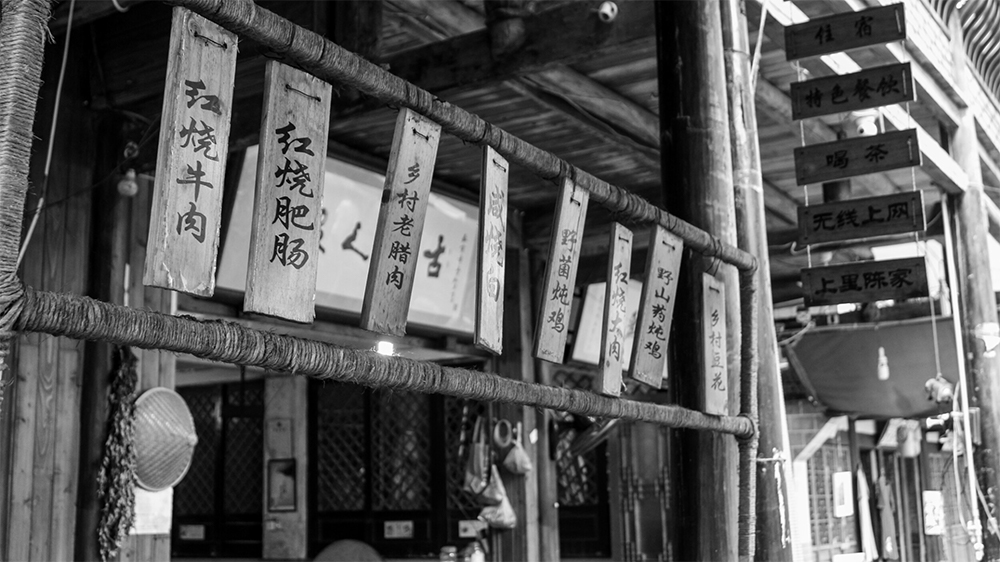 红烧牛肉
红烧肥肠
乡村老腊肉
咸烧白
野菌炖鸡
红烧大肉
野山药炖鸡
乡村豆花
古
人
住宿
特色餐饮
喝茶
无线上网
上里陈家